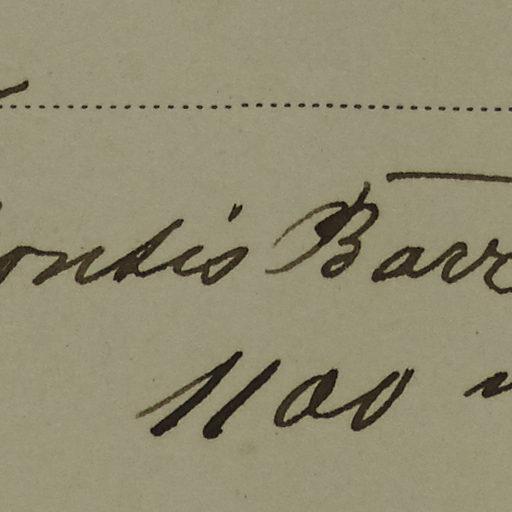 ontis Barr
1100